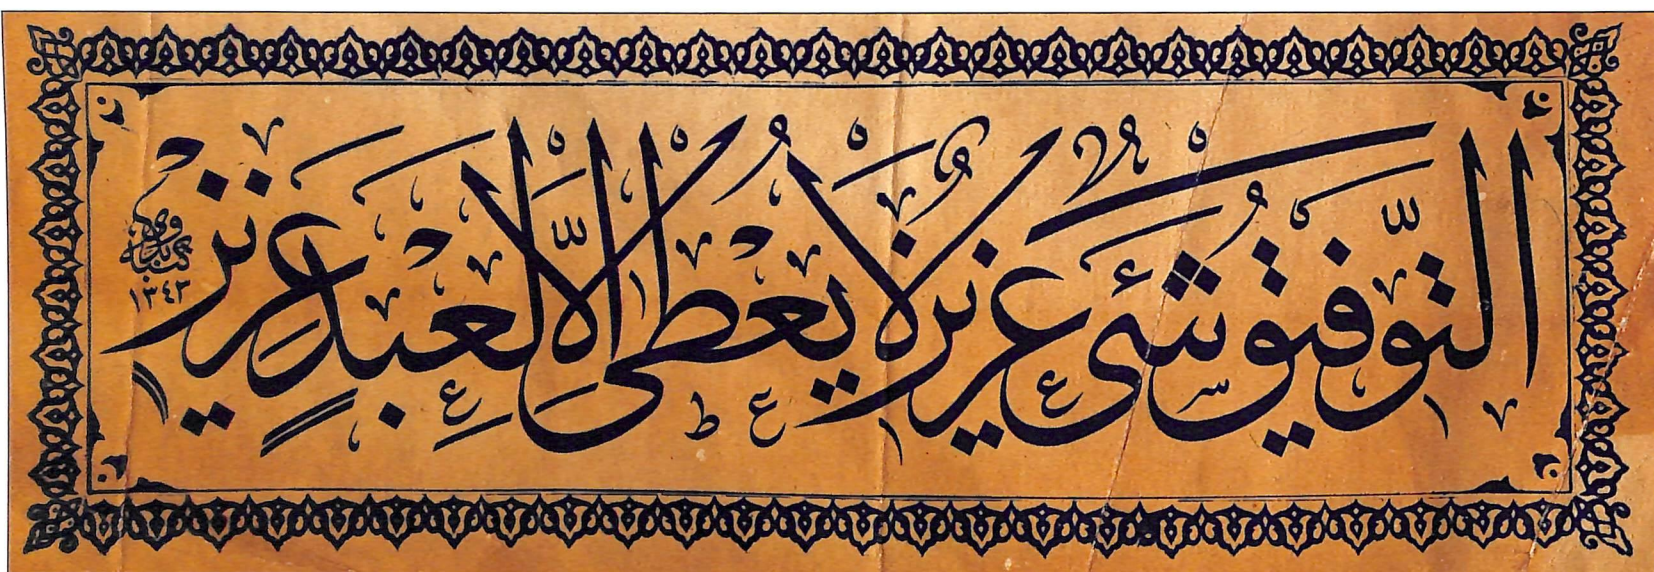 التَّوفيقُ شَئٌ عَزيزٌ لا يُعْطىٰ إلّا لِعَبْدٍ عَزيزٍ
١٣٤٣